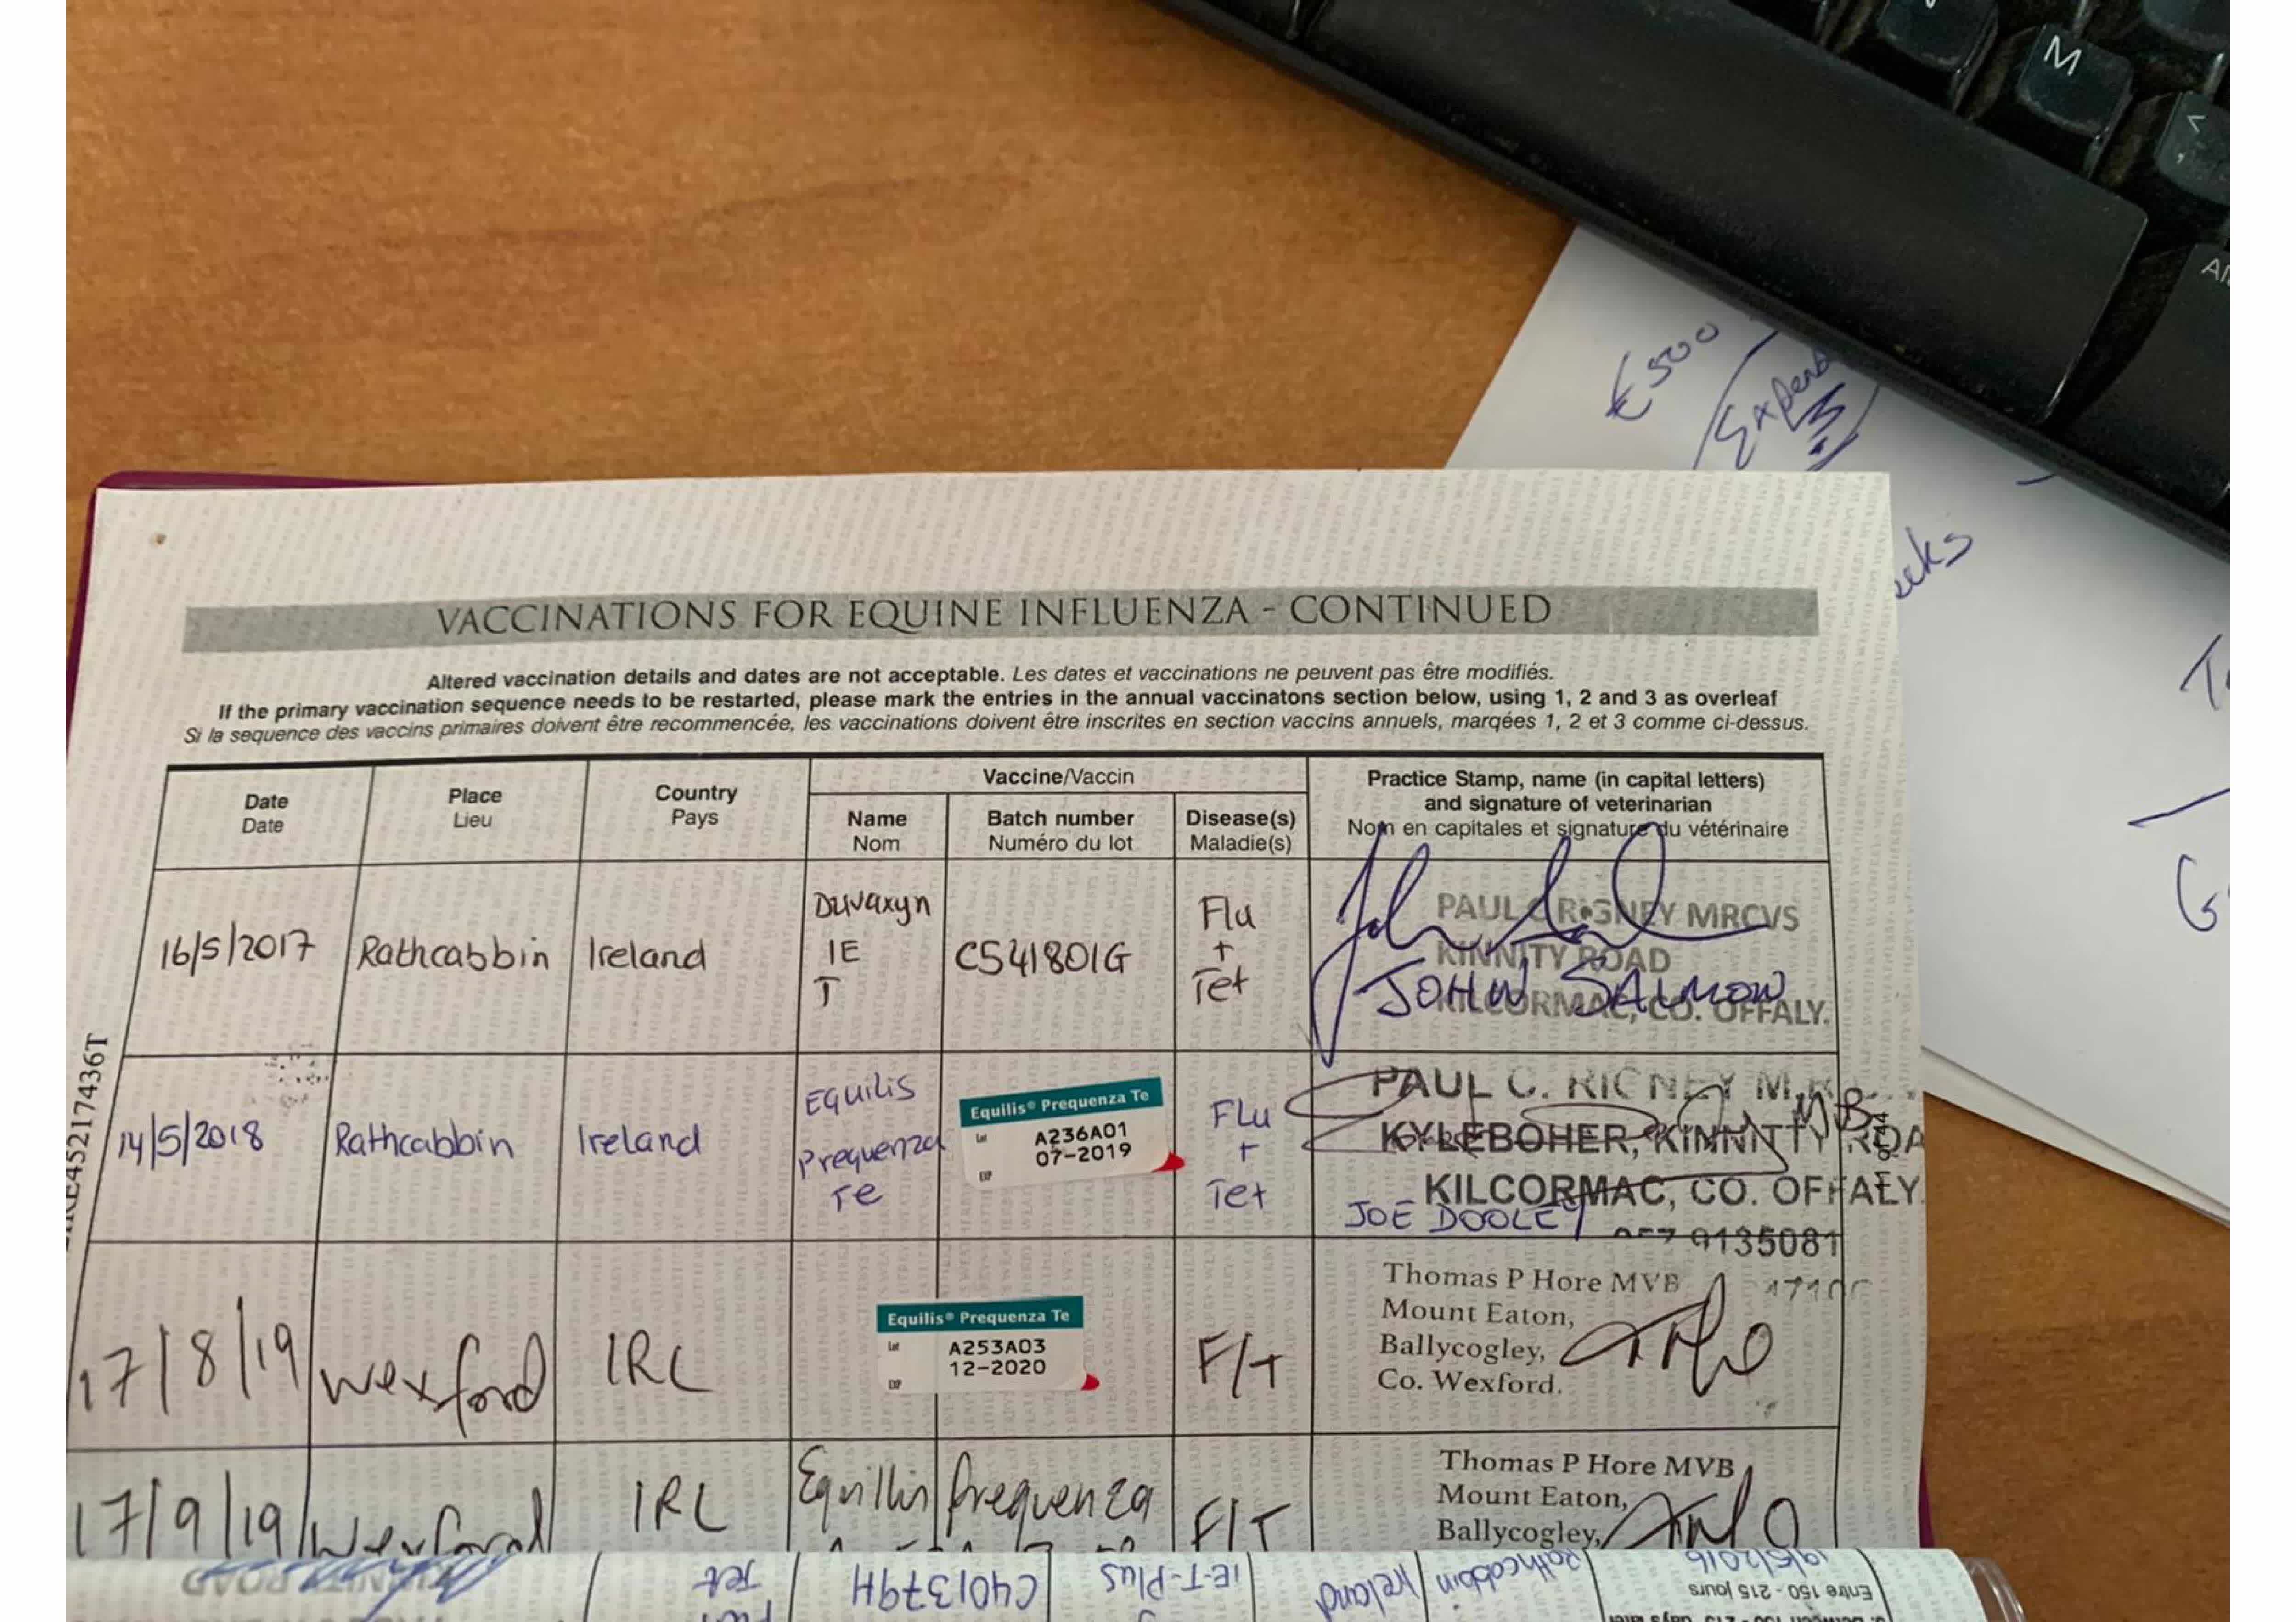 M
<
€500
VACCINATIONS FOR EQUINE INFLUENZA - CONTINUED
Altered vaccination details and dates are not acceptable. Les dates et vaccinations ne peuvent pas être modifiés.
If the primary vaccination sequence needs to be restarted, please mark the entries in the annual vaccinatons section below, using 1, 2 and 3 as overleaf
Si la sequence des vaccins primaires doivent être recommencée, les vaccinations doivent être inscrites en section vaccins annuels, marqées 1, 2 et 3 comme ci-dessus.
Date
Date
Place
Lieu
Country
Pays
Vaccine/Vaccin
Name
Nom
Batch number
Numéro du lot
Disease(s)
Maladie(s)
Practice Stamp, name (in capital letters)
and signature of veterinarian
Nom en capitales et signature du vétérinaire
16/5/2017
Rathcabbin
Ireland
Duvaxyn
IE
T
C541801G
Flu
+
Tet
PAUL C RIGNEY MRCVS
KINNITY ROAD
KILCORMAC, CO. OFFALY.
JOHN SALMON
14/5/2018
Rathcabbin
Ireland
Equilis
Prequenza
Te
Equilis® Prequenza Te
Lot A236A01
07-2019
EXP
Flu
+
Tet
PAUL C. RIGNEY M.R
KYLEBOHER, KINNITTY ROA
KILCORMAC, CO. OFFALY.
JOE DOOLEY
057 9135081
17/8/19
Wexford
IRL
Equilis® Prequenza Te
Lot A253A03
12-2020
EXP
F/T
Thomas P Hore MVB
Mount Eaton,
Ballycogley,
Co. Wexford.
17/9/19
Wexford
IRL
Equillis Prequenza
F/T
Thomas P Hore MVB
Mount Eaton,
Ballycogley,
Entre 150 - 215 jours
19/5/2016
Rathcabbin
Ireland
IE-T-Plus
C401379H
Tet
ROAD